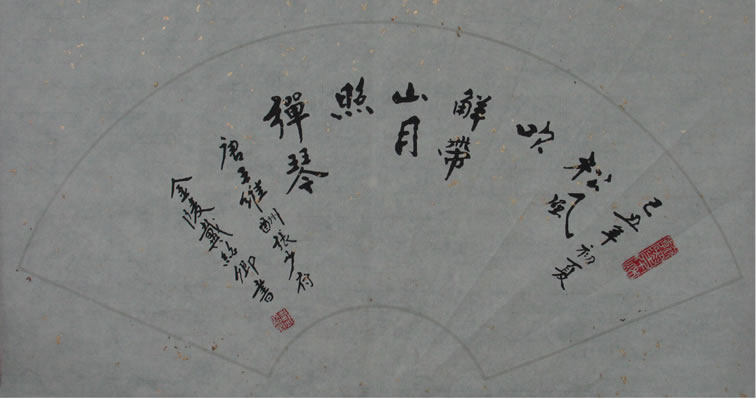 己丑年初夏
松風
吹
解帶
山月
照
彈琴
唐王維酬張少府
金陵戴紹卿書